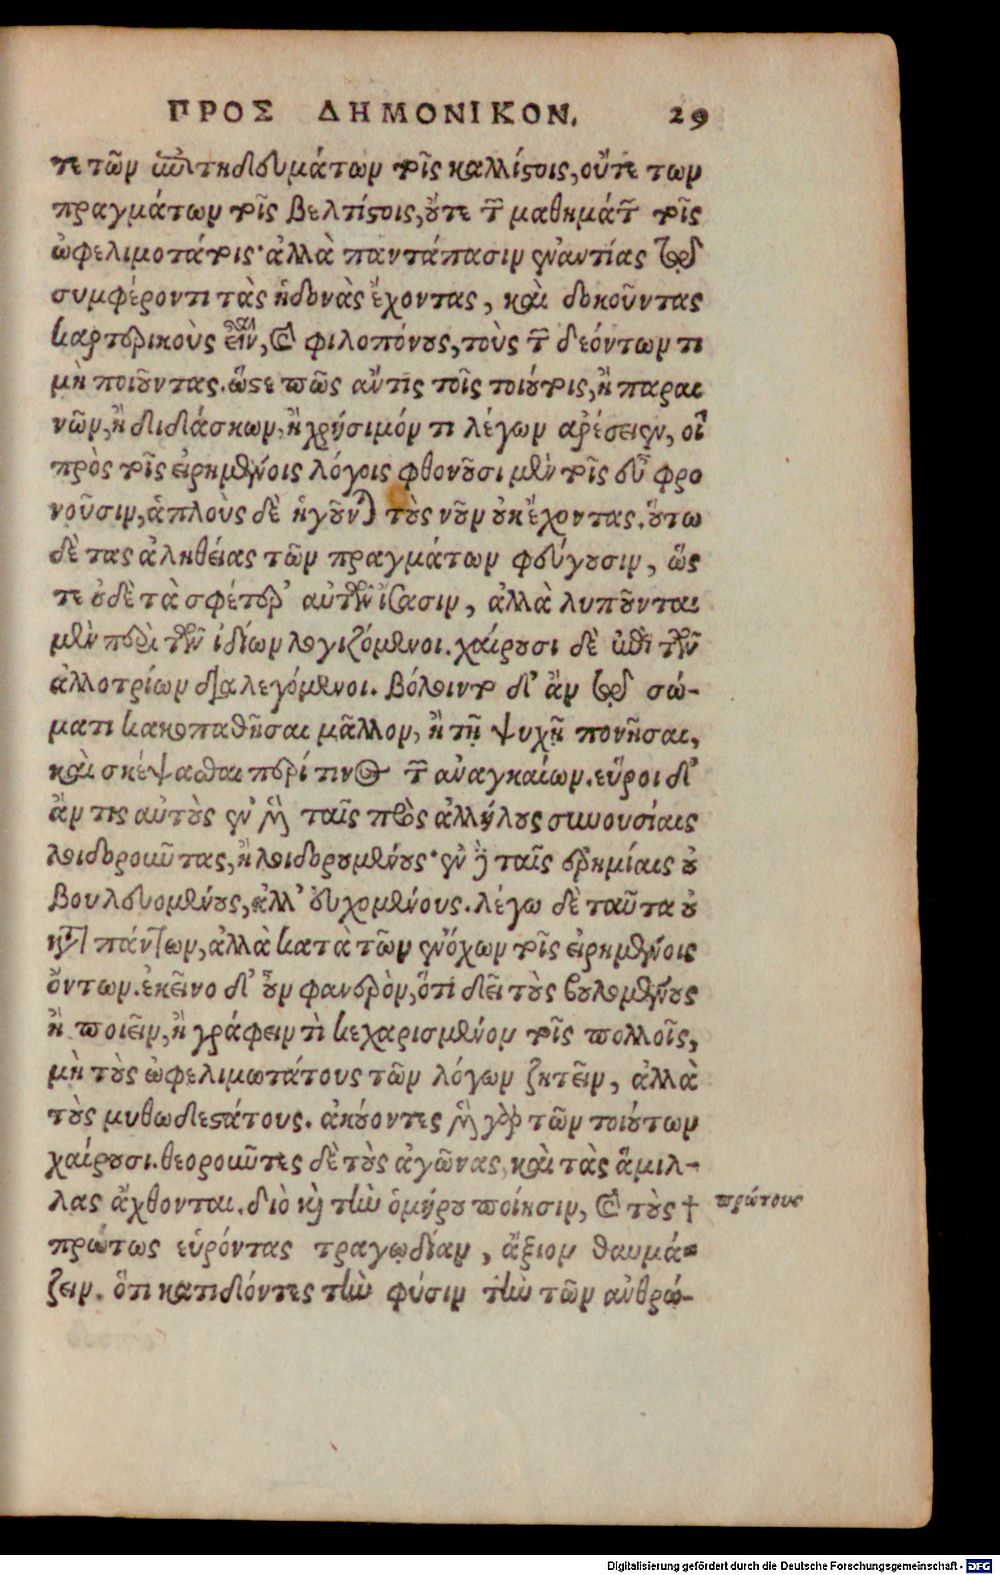 ΠΡΟΣ ΔΗΜΟΝΙΚΟΝ. 29
τε τῶν ἐπιτηδευμάτων τοῖς καλλίστοις, οὔτε των
πραγμάτων τοῖς βελτίστοις, ὄτε τῶν μαθημάτων τοῖς
ὠφελιμοτάτοις· ἀλλὰ παντάπασιν ἐναντίας τῷ
συμφέροντι τὰς ἡδονὰς ἔχοντας, καὶ δοκοῦντας
καρτερικοὺς εἶναι, καὶ φιλοπόνους, τοὺς τῶν δεόντων τι
μὴ ποιοῦντας. ὥστε πῶς ἄν τις τοῖς τοιούτοις, ἢ παραι
νῶν, ἢ διδάσκων, ἢ χρήσιμόν τι λέγων ἀρέσειεν, οἳ
πρὸς τοῖς εἰρημένοις λόγοις φθονοῦσι μὲν τοῖς εὖ φρο
νοῦσιν, ἁπλοὺς δὲ ἡγοῦνται τοὺς νοῦν οὐκ ἔχοντας. οὕτω
δὲ τας ἀληθείας τῶν πραγμάτων φεύγουσιν, ὥς
τε οὐδὲ τὰ σφέτερ' αὐτῶν ἴσασιν, ἀλλὰ λυποῦνται
μὲν περὶ τῶν ἰδίων λογιζόμενοι. χαίρουσι δὲ ἐπὶ τῶν
ἀλλοτρίων διαλεγόμενοι. βόλοιντο δ' ἂν τῷ σώ-
ματι κακοπαθῆσαι μᾶλλον, ἢ τῇ ψυχῇ πονῆσαι,
καὶ σκέψασθαι περί τινος τῶν ἀναγκαίων. εὕροι δ'
ἄν τις αὐτοὺς ἐν μὲν ταῖς πρὸς ἀλλήλους συνουσίαις
λοιδοροῦντας, ἢ λοιδορουμένους· ἐν δὲ ταῖς ἐρημίαις οὐ
βουλευομένους, ἀλλ' εὐχομένους. λέγω δὲ ταῦτα οὐ
κατὰ πάντων, ἀλλὰ κατὰ τῶν ἐνόχων τοῖς εἰρημένοις
ὄντων. ἐκεῖνο δ' οὖν φανερὸν, ὅτι δεῖ τοὺς βουλομένους
ἢ ποιεῖν, ἢ γράφειν τὶ κεχαρισμένον τοῖς πολλοῖς,
μὴ τοὺς ὠφελιμωτάτους τῶν λόγων ζητεῖν, ἀλλὰ
τοὺς μυθωδεστάτους. ἀκούοντες μὲν γὰρ τῶν τοιούτων
χαίρουσι. θεοροῦντες δὲ τοὺς ἀγῶνας, καὶ τὰς ἁμιλ-
λας ἄχθονται. διὸ καὶ τὴν ὁμήρου ποίησιν, καὶ τοὺς † πρώτους
πρώτως εὑρόντας τραγῳδίαν, ἄξιον θαυμά-
ζειν. ὅτι κατιδόντες τὴν φύσιν τὴν τῶν ἀνθρώ-
Digitalisierung gefördert durch die Deutsche Forschungsgemeinschaft - DFG